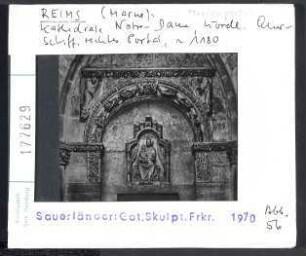 REIMS (Marne).
Kathedrale Notre-Dame, nördl. Quer-
schiff, rechtes Portal, n. 1180
177629
Sauerländer: Got. Skulpt. Frkr. 1970
Abb.
56